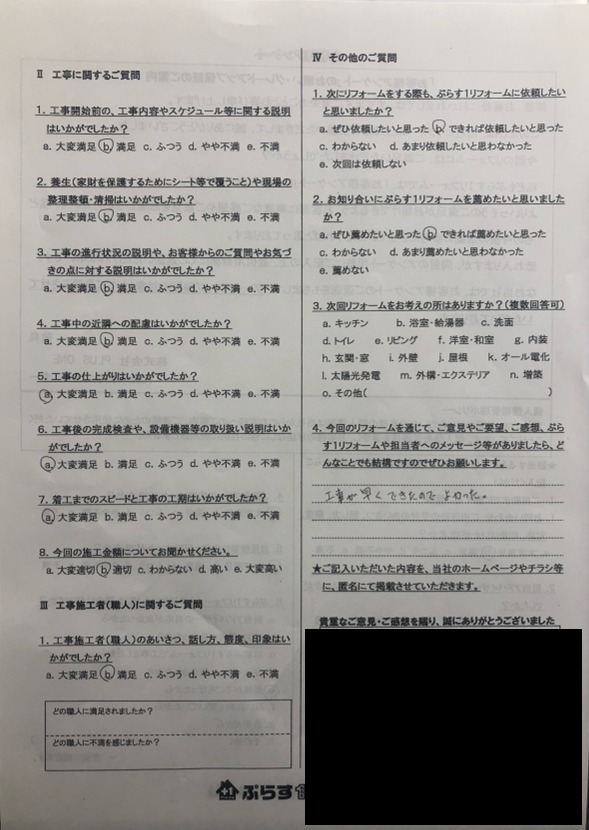 Ⅱ 工事に関するご質問
1. 工事開始前の、工事内容やスケジュール等に関する説明
はいかがでしたか？
a. 大変満足 b. 満足 c. ふつう d. やや不満 e. 不満
2. 養生(家財を保護するためにシート等で覆うこと)や現場の
整理整頓・清掃はいかがでしたか？
a. 大変満足 b. 満足 c. ふつう d. やや不満 e. 不満
3. 工事の進行状況の説明や、お客様からのご質問やお気づ
きの点に対する説明はいかがでしたか？
a. 大変満足 b. 満足 c. ふつう d. やや不満 e. 不満
4. 工事中の近隣への配慮はいかがでしたか？
a. 大変満足 b. 満足 c. ふつう d. やや不満 e. 不満
5. 工事の仕上がりはいかがでしたか？
a. 大変満足 b. 満足 c. ふつう d. やや不満 e. 不満
6. 工事後の完成検査や、設備機器等の取り扱い説明はいか
がでしたか？
a. 大変満足 b. 満足 c. ふつう d. やや不満 e. 不満
7. 着工までのスピードと工事の工期はいかがでしたか？
a. 大変満足 b. 満足 c. ふつう d. やや不満 e. 不満
8. 今回の施工金額についてお聞かせください。
a. 大変適切 b. 適切 c. わからない d. 高い e. 大変高い
Ⅲ 工事施工者(職人)に関するご質問
1. 工事施工者(職人)のあいさつ、話し方、態度、印象はい
かがでしたか？
a. 大変満足 b. 満足 c. ふつう d. やや不満 e. 不満
どの職人に満足されましたか？
どの職人に不満を感じましたか？
Ⅳ その他のご質問
1. 次にリフォームをする際も、ぷらす1リフォームに依頼したい
と思いましたか？
a. ぜひ依頼したいと思った b. できれば依頼したいと思った
c. わからない d. あまり依頼したいと思わなかった
e. 次回は依頼しない
2. お知り合いにぷらす1リフォームを薦めたいと思いました
か？
a. ぜひ薦めたいと思った b. できれば薦めたいと思った
c. わからない d. あまり薦めたいと思わなかった
e. 薦めない
3. 次回リフォームをお考えの所はありますか？(複数回答可)
a. キッチン b. 浴室・給湯器 c. 洗面
d. トイレ e. リビング f. 洋室・和室 g. 内装
h. 玄関・窓 i. 外壁 j. 屋根 k. オール電化
l. 太陽光発電 m. 外構・エクステリア n. 増築
o. その他( )
4. 今回のリフォームを通じて、ご意見やご要望、ご感想、ぷら
す1リフォームや担当者へのメッセージ等がありましたら、ど
んなことでも結構ですのでぜひお願いします。
工事が早くできたのでよかった。
★ご記入いただいた内容を、当社のホームページやチラシ等
に、匿名にて掲載させていただきます。
貴重なご意見・ご感想を賜り、誠にありがとうございました
+1 ぷらす